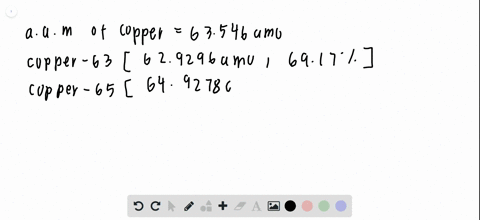 a.a.m of copper = 63.546 amu
copper-63 [ 62.9296 amu, 69.17% ]
copper-65 [ 64.9278